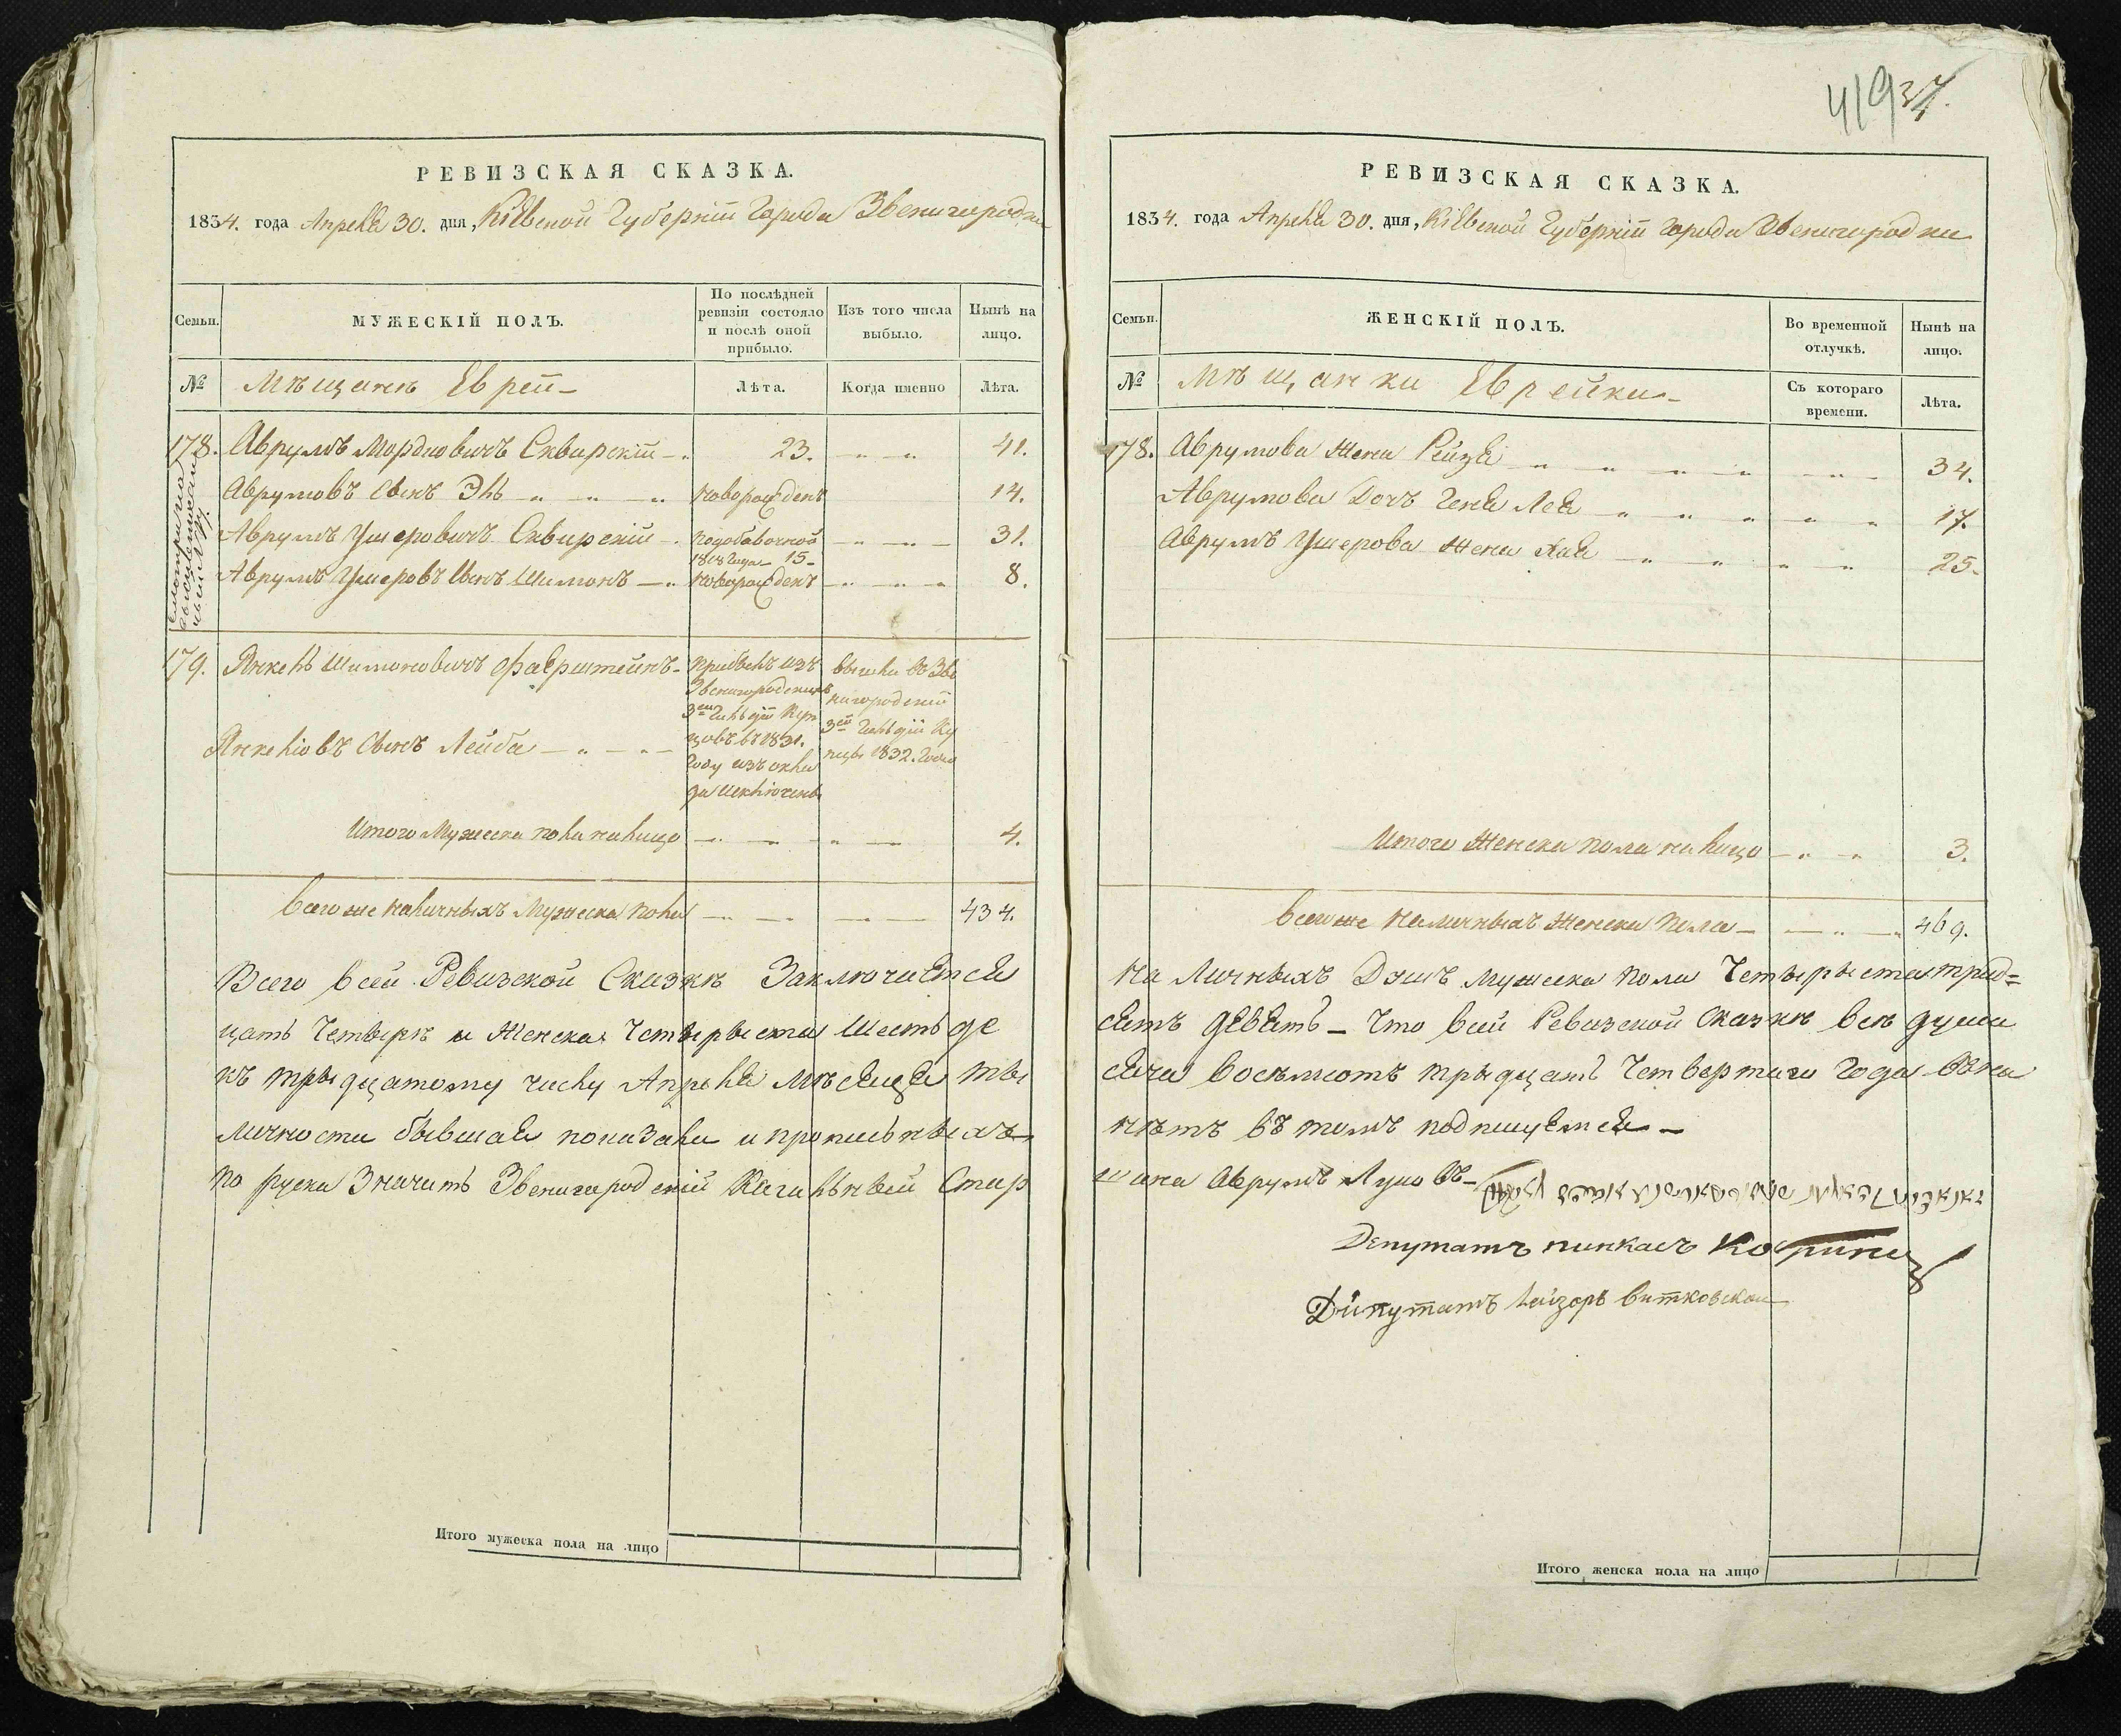 РЕВИЗСКАЯ СКАЗКА.
1834. года Апреля 30. дня, Кіевской Губерніи Города Звенигородки
Семьи.
МУЖЕСКІЙ ПОЛЪ.
По послѣдней ревизіи состояло и послѣ оной прибыло.
Изъ того числа выбыло.
Нынѣ на лицо.
№
Мѣщане Евреи
Лѣта.
Когда именно
Лѣта.
178. Аврумъ Мордковичъ Сквирскій 23. 41.
Аврумовъ Сынъ Эль новорожденъ 14.
Аврумъ Ушеровичъ Сквирскій подобавочной 1818 Года 15 31.
Аврумъ Ушеровъ Сынъ Шимонъ новорожденъ 8.
179. Янкель Шимоновичъ Фаерштейнъ
Янкеліовъ Сынъ Лейба
прибылъ изъ
Звенигородскихъ
3ей Гильдіи Куп
цовъ въ 1831.
Году изъ окла
да Исключены
вышли въ Зве
нигородскій
3ей Гильдіи Ку
пцы 1832. Года
Итого Мужеска пола налицо 4.
Всего же наличныхъ Мужеска пола 434.
Всего всей Ревизской Сказкѣ Заключается
цать Четырѣ и Женска Четырыста Шестьде
къ трыдцатому числу Апреля мѣсяца ты
личности бывшая показаны и прописныхъ
по руски Значитъ Звенигородскій Кагальный Стар
Итого мужеска пола на лицо
41937.
РЕВИЗСКАЯ СКАЗКА.
1834. года Апреля 30. дня, Кіевской Губерніи Города Звенигородки
Семьи.
ЖЕНСКІЙ ПОЛЪ.
Во временной отлучкѣ.
Нынѣ на лицо.
№
Мѣщанки Еврейки
Съ котораго времени.
Лѣта.
178. Аврумова Жена Рейзя 34.
Аврумова Дочъ Геня Лея 17.
Аврумъ Ушерова Жена Хая 25.
Итого Женска пола налицо 3.
Всего же наличныхъ Женска Пола 469.
на Личныхъ Душъ мужеска пола Четырыста трид=
сятъ девять - Что всей Ревизской сказкѣ все души
сяча восемьсотъ трыдцать Четвертаго Года въ на
нѣтъ въ томъ подпищемся
шина Аврумъ Луцовъ
Депутатъ пинкасъ
Дипутатъ Лейзоръ витковскои
Итого женска пола на лицо